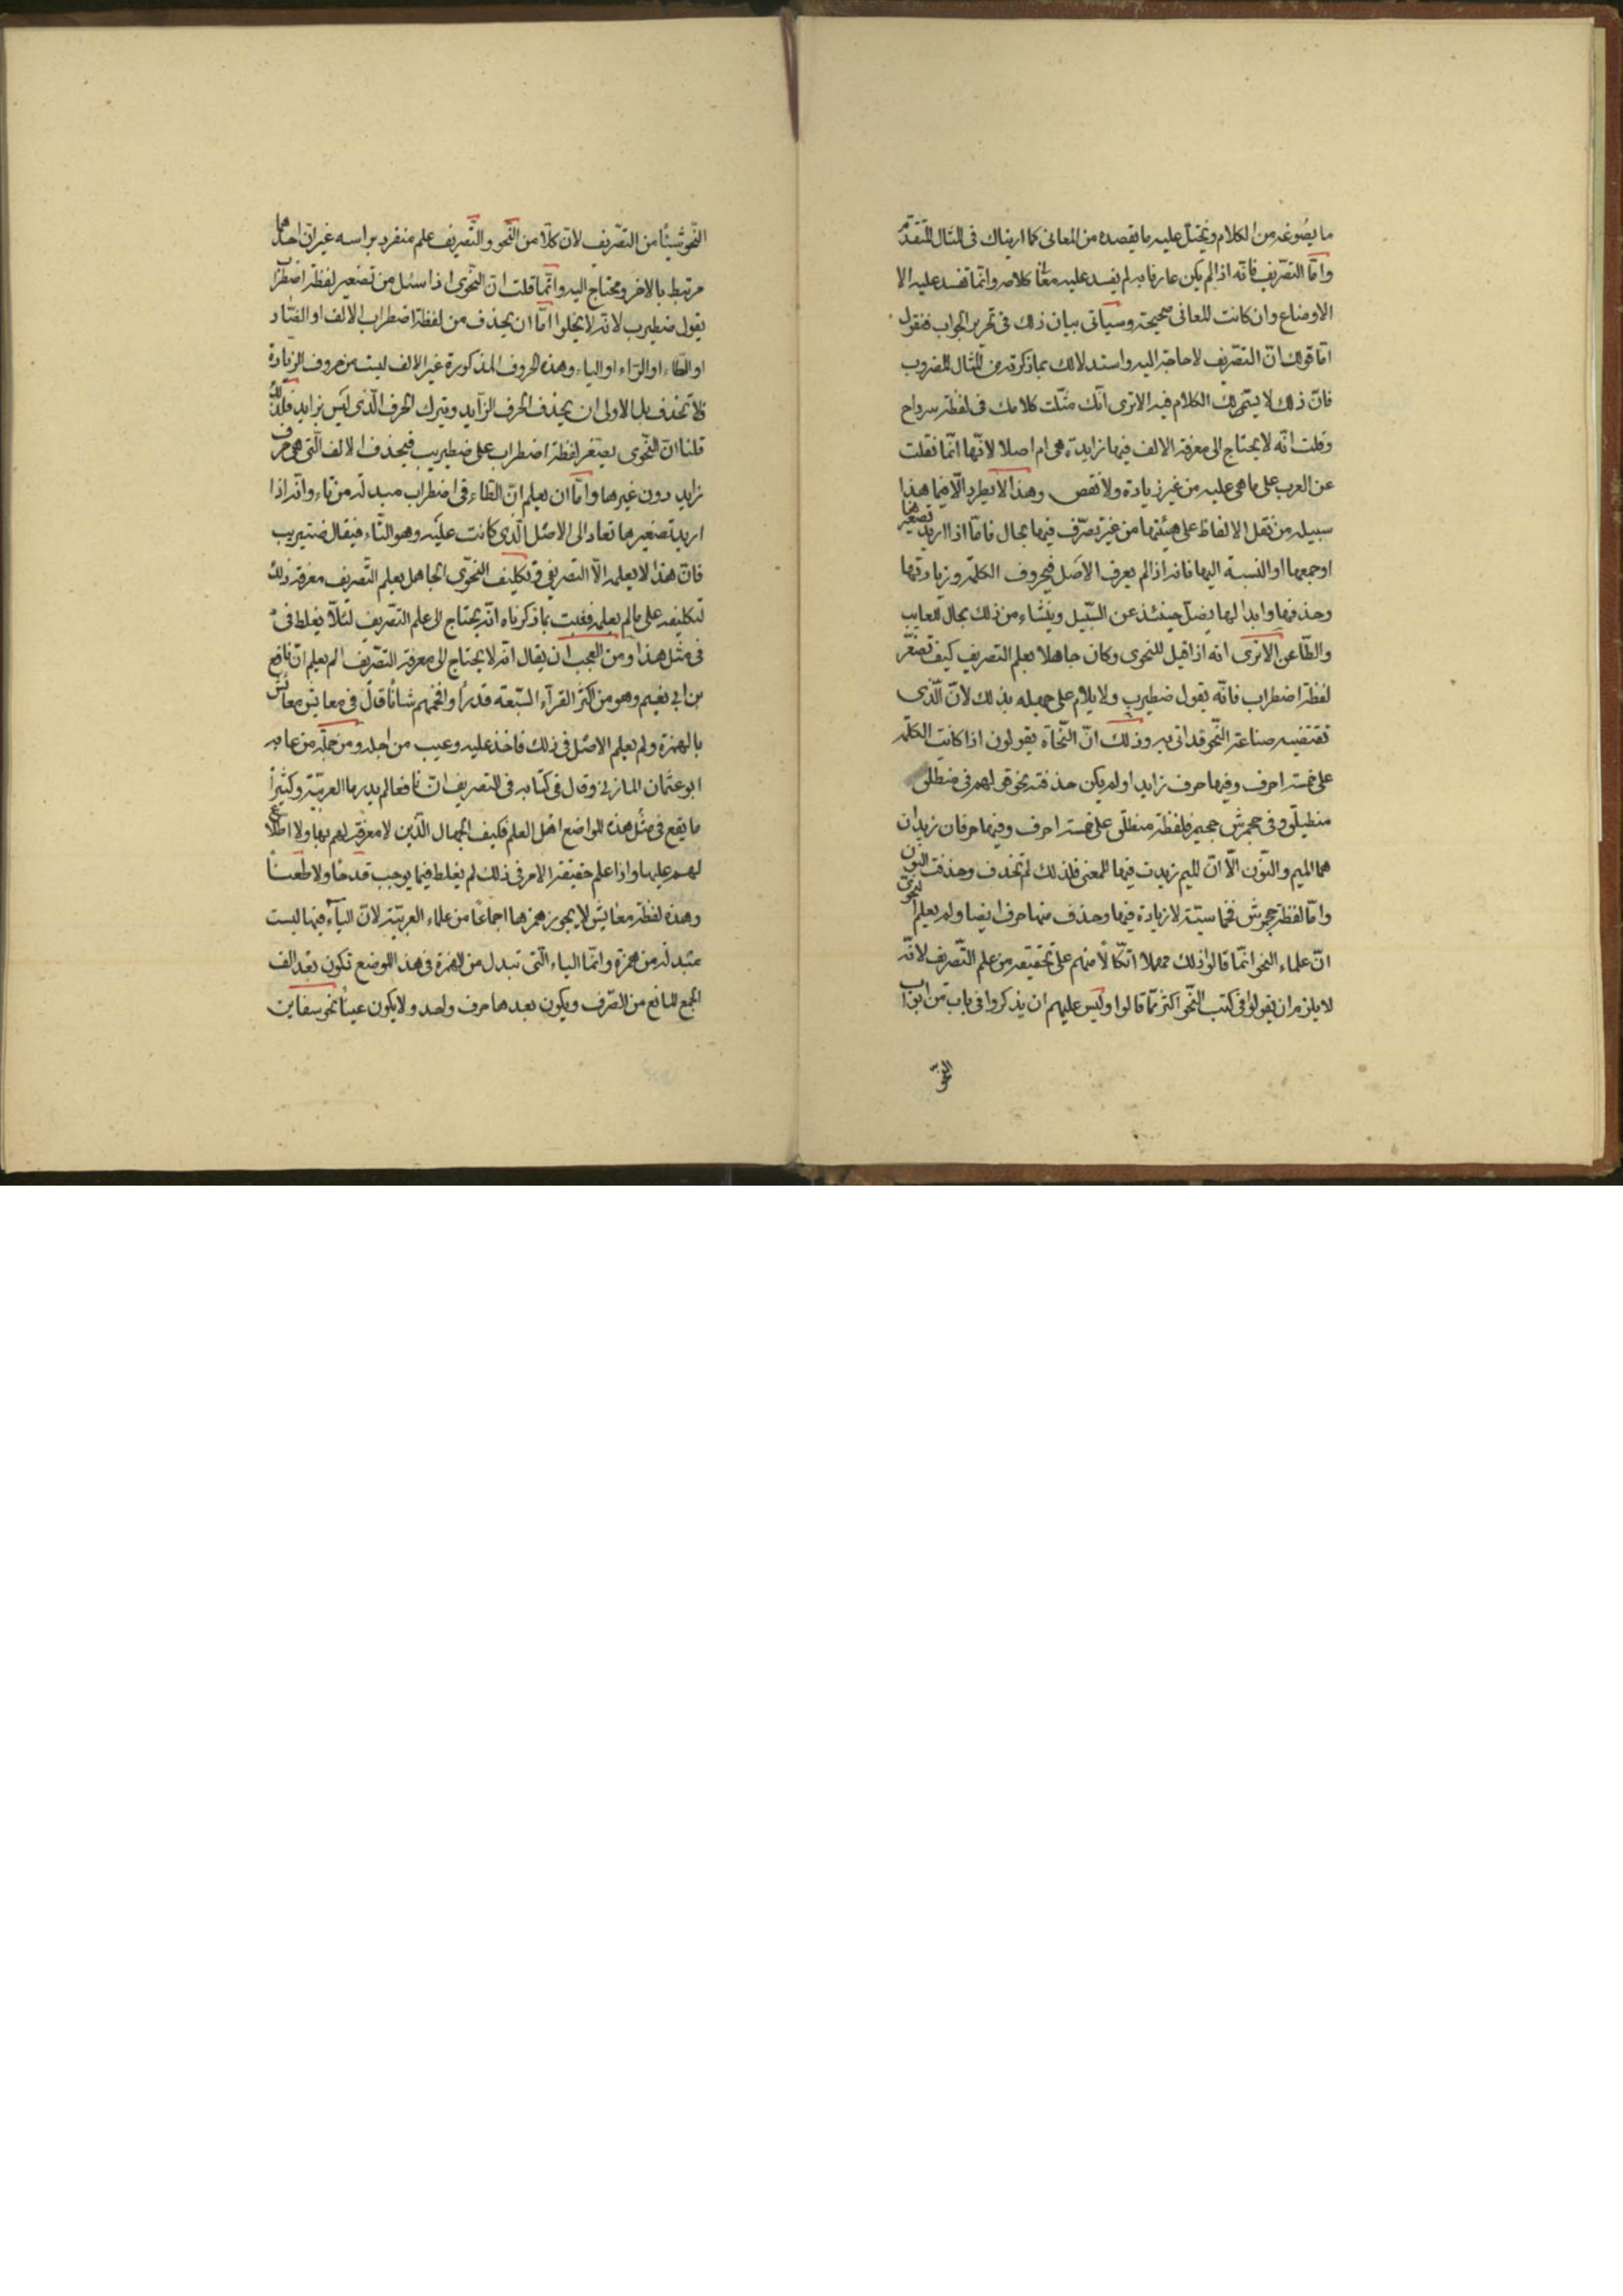 ما يصوغه من الكلام ويختل عليه ما يقصده من المعانى كما اريناك فى المثال المتقدم
وامّا التصّريف فانّه اذا لم يكن عارفا به لم يفسد عليه معانى كلامه وانّما تفسد عليه الا
الاوضاع وان كانت المعانى صحيحة وسيأتى بيان ذلك فى تحرير الجواب فنقول
امّا قولك انّ التصّريف لا حاجة اليه واستدلالك بما ذكرته من المثال المضروب
فانّ ذلك لا يستمر لك الكلام فيه الا ترى انّك مثّلت كلامك فى لفظة سرداح
وقلت انّه لا يحتاج الى معرفة الالف فيها زايدة هى ام اصلا لانّها انّما نقلت
عن العرب على ما هى عليه من غير زيادة ولا نقص وهذا لا يطرد الّا فيما هذا
سبيله من نقل الالفاظ على هيئتها من غير تصرّف فيها بحال فامّا اذا اريد تصغيرها
او جمعها او النسبة اليها فانه اذا لم يعرف الاصل فى حروف الكلمة وزيادتها
وحذفها وابدالها يضلّ حينئذ عن السّبيل وينشاء من ذلك مجال للعايب
والطّاعن الا ترى انه اذا قيل للنحوى وكان جاهلا بعلم التصريف كيف تصغّر
لفظة اضطراب فانّه يقول ضطيرب ولا يلام على جهله بذلك لانّ الّذى
تقتضيه صناعة النّحو قد اتى به وذلك انّ النّحاة يقولون اذا كانت الكلمة
على خمسة احرف وفيها حرف زايد او لم يكن حذفته نحو قولهم فى منطلق
منطيلق وفى جحمرش جحيمر فلفظة منطلق على خمسة احرف وفيها حرفان زيدان
هما الميم والنّون الّا انّ الميم زيدت فيها لمعنى فلذلك لم تحذف وحذفت النون
وامّا لفظة جحمرش فخماسيّة لا زيادة فيها وحذف منها حرف ايضا ولم يعلم النحوىّ
انّ علماء النحو انّما قالوا ذلك مهملا اتّكالا منهم على تحقيقه من علم التّصريف لانّه
لا يلزم ان يقولوا فى كتب النّحو اكثر ممّا قالوا وليس عليهم ان يذكروا فى باب من ابواب
النّحو
النّحو شيئا من التصّريف لانّ كلّا من النّحو والتّصريف علم منفرد براسه غير انّ احدهما
مرتبط بالاخر ومحتاج اليه وانّما قلت انّ النّحوى اذا سئل من تصغير لفظة اضطراب
يقول ضطيرب لانّه لا يخلوا امّا ان يحذف من لفظة اضطراب الالف او الضّاد
او الطاء او الرّاء او الباء وهذه الحروف المذكورة غير الالف ليست من حروف الزيادة
فلا تحذف بل الاولى ان يحذف الحرف الزّايد ويترك الحرف الّذى ليس بزايد فلذلك
قلنا انّ النّحوى يصغّر لفظة اضطراب على ضطيرب فيحذف الالف الّتى هى حرف
زايد دون غيرها وامّا ان يعلم انّ الطّاء فى اضطراب مبدلة من تاء وانّه اذا
اريد تصغيرها تعاد الى الاصل الّذى كانت عليه وهو التّاء فيقال ضتيريب
فانّ هذا لا يعلمه الّا التصريفى وتكليف النّحوى الجاهل بعلم التّصريف معرفة ذلك
تكليفه على ما لم يعلمه فثبت بما ذكرناه انّه يحتاج الى علم التّصريف لئلّا يغلط فى
فى مثل هذا ومن العجب ان يقال انّه لا يحتاج الى معرفة التصّريف الم يعلم انّ نافع
بن ابى نعيم وهو من اكبر القرآء السّبعة قدرا وافخمهم شانا قال فى معايش معائش
بالهمزة ولم يعلم الاصل فى ذلك فاخذ عليه وعيب من اجله ومن جملة من عابه
ابو عثمان المازنى وقال فى كتابه فى التصريف انّ نافعا لم يدر ما العربيّة وكثيرا
ما يقع فى مثل هذه المواضع اهل العلم فكيف الجهال الّذين لا معرفة لهم بها ولا اطلاع
لهم عليها واذا علم حقيقة الامر فى ذلك لم يغلط فيما يوجب قدحا ولا طعنا
وهذه لفظة معايش لا يجوز همزها اجماعا من علماء العربيّة لانّ الياء فيها ليست
مبدلة من همزة وانّما الياء الّتى تبدل من الهمزة فى هذا الموضع تكون بعد الف
الجمع المانع من الصّرف ويكون بعدها حرف واحد ولا يكون عينا نحو سفاين